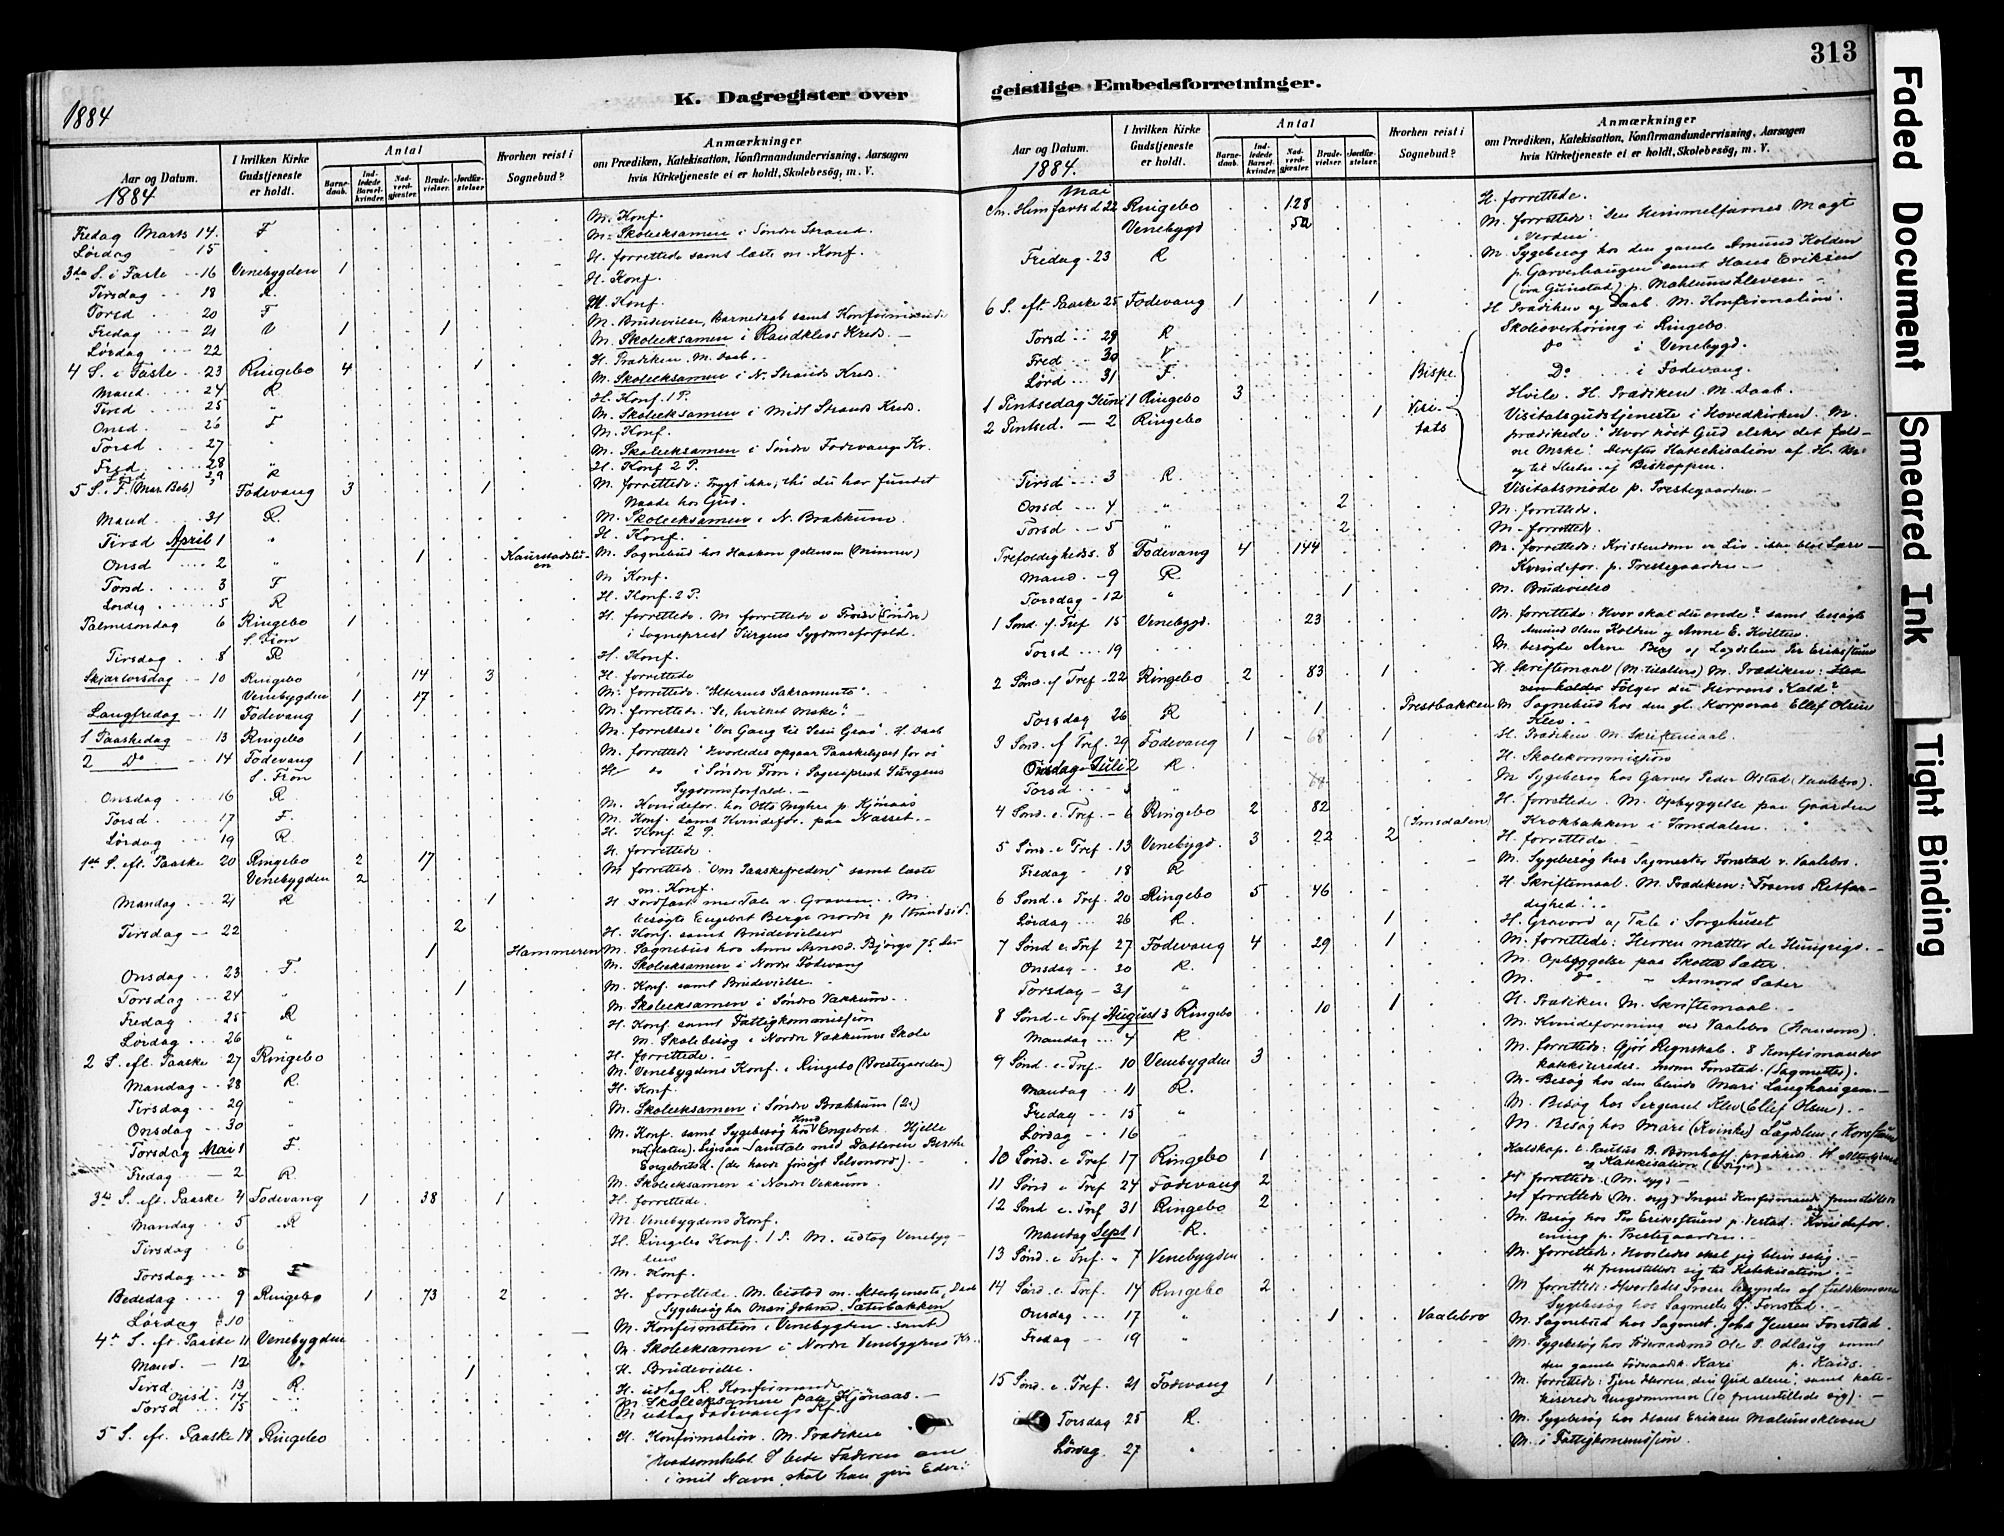 313
K. Dagregister over geistlige Embedsforretninger.
1884
Aar og Datum.
1884
I hvilken Kirke Gudstjeneste er holdt.
Antal
Barne-daab.
Ind-ledede Barsel-kvinder.
Nad-verd-gjæster.
Brude-vielser.
Jordfæ-stelser.
Hvorhen reist i Sognebud?
Anmærkninger
om Prædiken, Katekisation, Konfirmandundervisning, Aarsagen
hvis Kirketjeneste ei er holdt, Skolebesøg, m. V.
M. Konf.
Fredag Marts 14. F M. Skoleeksamen i Søndre Strand.
Lørdag 15 H. forrettede samt læste m. Konf.
3die S. i Faste 16 Venebygden 1 H. Konf.
Tirsdag 18 R. M. Konf.
Torsd 20 F M. Brudevielse, Barnedaab samt
Fredag 21 V 1 1 M. Skoleeksamen i Randklevs Kreds.
Lørdag 22 H. Prædiken. M. Daab.
4 S. i Faste 23 Ringebo 4 1 M. Skoleeksamen i N. Strands Kreds.
Mand. 24 R. H. Konf. 1 P.
Tirsd 25 " M. Skoleeksamen i Midt Strands Kreds.
Onsd 26 F M. Konf.
Torsd 27 M. Skoleeksamen i Søndre Fodevangs Kr.
Fred. 28 " H. Konf 2 P.
29 R
5 S. i F. (Mar. Beb) Fodevang 3 1 M. forrettede: Frygt ikke, thi du har fundet
Naade hos Gud.
Mand. 31 R. M. Skoleeksamen i N. Brakkum.
Tirsd April 1 " H. Konf.
Onsd 2 " 1 M. Sognebud hos
Torsd. 3 F M. Konf.
Lørdag 5 R H. Konf. 2 P.
Palmesøndag 6 Ringebo 1 H. forrettede. M. forrettede i
S. Fron i Sogneprest Sygdomsforfald.
Tirsdag 8 R H. Konf.
Skjærtorsdag 10 Ringebo 14 3 H. forrettede
Venebygden 1 17 M. forrettede "Alterens Sakramente".
Langfredag 11 Fodevang 1 M. forrettede. "Se, hvilket Menske".
1 Paaskedag 13 Ringebo 1 M. forrettede "Vor Gang til Jesu Grav". H. Daab
2 Do 14 Fodevang 1 M. forrettede "Hvorledes opgaar Paaskelyset for os"
S. Fron H do i Søndre Fron i Sogneprest
Sygdomsforfald.
Onsdag 16 R. M. Kvindefor. hos Otto Myhre p. Kjønaas
Torsd. 17 F. M. Konf. samt Kvindefor. paa
Lørdag 19 R. H. Konf 2 P.
1ste S. eft. Paaske 20 Ringebo 2 17 H. forrettede.
Venebygden 2 M. forrettede "Om Paaskefreden" samt læste
m. Konf.
Mandag 21 R 1 H. Jordfæst. med Tale v. Graven. M.
besøgte Engebret Berge
Tirsdag 22 2 H. Konf. samt Brudevielser
1 Hammeren M. Sognebud hos
M. Skoleeksamen i Nordre Fodevang
Onsdag 23 F. M. Konf. samt Brudevielse
Torsdag 24 " 1 M. Skoleeksamen i Søndre Vækkum.
Fredag 25 R H. Konf samt Fattigkommission
Lørdag 26 " M. Skolebesøg i Nordre Vækkums Skole
2 S. eft. Paaske 27 Ringebo H. forrettede.
Mandag 28 R. M. Venebygdens Konf. i Ringebo (Prestegaarden)
Tirsdag 29 " H. Konf
Onsdag 30 " M. Skoleeksamen i Søndre Brakkum
Torsdag Mai 1 F. M. Konf. samt Sygebesøg hos Engebret Hjelle
Samtale med Datteren Berthe
Fredag 2 R. Engebretsd. (der havde forsøgt Selvmord).
M. Skoleeksamen i Nordre Vækkum.
3die S. eft. Paaske 4 Fodevang 1 38 1 H. forrettede.
Mandag 5 R M. Venebygdens Konf.
Tirsdag 6 H. Ringebo Konf. 1 P. M. udtog Venebyg-
dens
Torsdag 8 F M. Konf.
Bededag 9 Ringebo 1 73 2 H. forrettede. M. bistod m. Altertjeneste,
Sygebesøg hos Mari Johnsd. Sæterbakken
Lørdag 10 " M. Konfirmation i Venebygden samt
4de S. eft. Paaske 11 Venebygden M. Skoleeksamen i Nordre Venebygdens Kr.
Mand. 12 V. H. Brudevielse.
Tirsd 13 R. 1 H. udtog R. Konfirmander
Onsd 14 M. Skoleeksamen paa Kjønaas.
Torsd 15 " M udtog Fodevangs Kf.
5 S. ef. Paaske 18 Ringebo H. Konfirmation. M. Prædiken
"Hvadsomhelst I bede Faderen om
i mit Navn, skal han give Eder".
Aar og Datum.
1884.
I hvilken Kirke Gudstjeneste er holdt.
Antal
Barne-daab.
Ind-ledede Barsel-kvinder.
Nad-verd-gjæster.
Brude-vielser.
Jordfæ-stelser.
Hvorhen reist i Sognebud?
Anmærkninger
om Prædiken, Katekisation, Konfirmandundervisning, Aarsagen
hvis Kirketjeneste ei er holdt, Skolebesøg, m. V.
Mai
Himfartsd 22 Ringebo 128 H. forrettede.
Venebygd 52 M. forrettede: "Den Himmelfarnes Magt
i Verden".
Fredag 23 R M. Sygebesøg hos den gamle Amund Kolden
p. Garverhaugen samt Hans Eriksen
p. Mahlumskleven.
6 S. eft. Paaske 25 Fodevang 1 1 H Prædiken og Daab. M. Konfirmation.
Torsd 29 R Skoleoverhøring i Ringebo
Fred 30 V. do i Venebygd.
Lørd 31 F. Bispe Do i Fodevang.
1 Pintsedag Juni 1 Ringebo 3 Visi- Hvile. H. Prædiken. M. Daab.
2 Pintsed. 2 Ringebo 1 tats Visitatsgudstjeneste i Hovedkirken. M.
prædikede: "Hvor høit Gud elsker det fald-
ne Mske". Derefter Katechisation af H. M.
og til Slutn. af Biskoppen.
Tirsd 3 R. Visitatsmøde p. Prestegaarden.
Onsd 4 " 2 M. forrettede.
Torsd 5 " 2 M. forrettede.
Trefoldigheds. 8 Fodevang 4 144 M. forrettede: Kristendom er Liv - ikke blot Lære
Mand. 9 R. Kvindefor. p. Prestegaarden
Torsdag 12 " 1 M. Brudevielse
1 Sønd. f. Tref 15 Venebygd. 23 M. forrettede: "Hvor skal du ende?" samt besøgte
Amund Olsen Kolden og Anne E. Kvilten.
Torsd 19 M besøgte Arne Berg og
2 Sønd. f Tref 22 Ringebo 2 83 1 H. Skriftemaal M. Prædiken:
Følger du Herrens Kald?
Torsdag 26 R 1 Prestbakken M Sognebud hos den gl. Korporal Ellef Olsen
Klev.
3 Sønd. f Tref. 29 Fodevang 1 68 1 H. Prædiken M. Skriftemaal.
Onsdag Juli 2 R. H. Skolekommission
Torsd. 3 " M Sygebesøg hos Garver Peder Olstad (Vaalebro).
4 Sønd. e. Tref. 6 Ringebo 2 82 H. forrettede. M. Opbyggelse paa Gaarden
(Imsdalen) Krokbakken i Imsdalen.
5 Sønd. e Tref. 13 Venebygd. 3 22 2 H. forrettede
Fredag 18 R M. Sygebesøg hos Sagmester Fonstad v. Vaalebro.
6 Sønd. e Tref. 20 Ringebo 5 46 H. Skriftemaal. M. Prædiken: "Troens Retfær-
dighed".
Lørdag 26 R. 1 H. Gravord og Tale i Sørgehuset
7 Sønd e Tref 27 Fodevang 4 29 1 M. forrettede: Herren mætter de Hungrige.
Onsdag 30 R. M. Opbyggelse paa Skotte Sæter.
Torsdag 31 " M. Do Annord Sæter
8 Sønd e Tref August 3 Ringebo 10 1 H. Prædiken M. Skriftemaal.
Mandag 4 R. M. Kvindeforening ved Vaalebro (Hansens).
9 Sønd. e Tref. 10 Venebygden 3 M. forrettede: Gjør Regnskab. 8 Konfirmander
katekiseredes.
Mandag 11 R. M. Besøg hos den blinde Mari Langhaugen
Fredag 15 " M. Besøg hos Sergeant Klev (Ellef Olsen).
Lørdag 16 " M. Besøg hos Mari (Kvinke)
10 Sønd. e Tref 17 Ringebo 1 Kalskap. prædiked. H. Altertjeneste
og Katekisation
11 Sønd e Tref 24 Fodevang 2 H forrettede (M. syg)
12 Sønd e. Tref 31 Ringebo 2 H forrettede (M. syg) Ingen Konfirmander fremstillede
Mandag Sept 1 R. M. Besøg hos Kvindefor-
ening p. Prestegaarden.
13 Sønd. e Tref. 7 Venebygden M. forrettede: Hvorledes skal jeg blive salig.
4 fremstillede sig til Katekisation.
14 Sønd. e Tref. 14 Ringebo 2 M forrettede: Hvorledes Troen begyndes og fuldkommes
Sygebesøg hos Sagmester J. Fonstad.
Onsdag 17 " 1 Vaalebro M. Sognebud hos Sagmest. Johs Jensen Fonstad.
Fredag 19 " M. Sygebesøg hos Ole P. Odlaug samt
den gamle Kari p. Kaus.
15 Sønd. e. Tref. 21 Fodevang 1 M. forrettede: Tjen Herren, din Gud alene! samt kate-
kiserede Ungdommen (10 fremstillede sig).
Torsdag 25 R. M. Sygebesøg hos Hans Eriksen
Lørdag 27 " M. i Fattigkommission.
Faded Document
Smeared Ink
Tight Binding